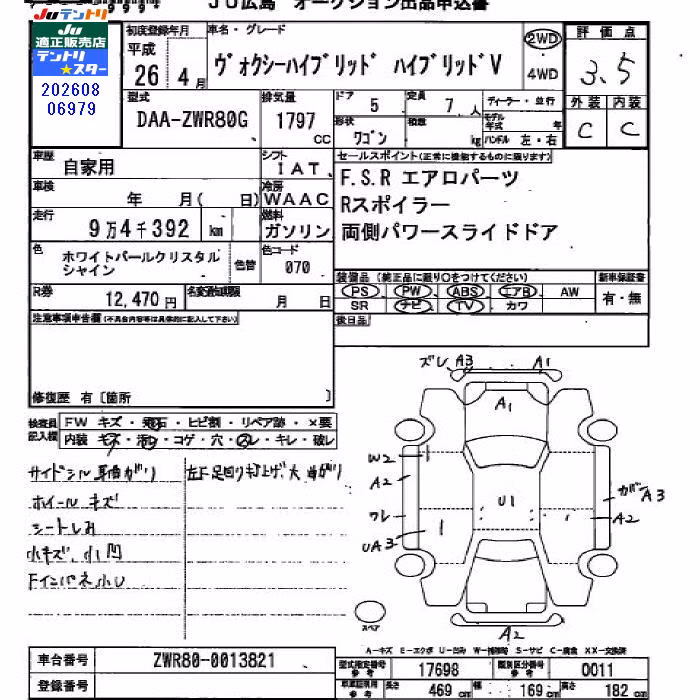 ＪＵ広島　オークション出品申込書
JUテントリ
JU
適正販売店
テントリ
★スター
202608
06979
初度登録年月
平成
26 年 4 月
車名・グレード
ヴォクシーハイブリッド ハイブリッドV
2WD
4WD
評価点
3.5
外装 内装
C C
型式
DAA-ZWR80G
排気量
1797 CC
ドア 5
定員 7 人
形状 ワゴン
積載 kg
ディーラー・並行
モデル年式 年
ハンドル 左・右
車歴 自家用
シフト IAT
車検 年 月( 日)
冷房 WAAC
走行 9万4千392 km
燃料 ガソリン
色 ホワイトパールクリスタルシャイン
色替
色コード 070
R券 12,470 円
名変通知期限 月 日
セールスポイント(正常に機能するものに限ります)
F.S.R エアロパーツ
Rスポイラー
両側パワースライドドア
装備品(純正品に限り○をつけてください)
PS PW ABS エアB AW
SR ナビ TV カワ
新車保証書
有・無
後日品
注意事項申告欄(不具合内容等は具体的に記入して下さい)
修復歴 有〔箇所 〕
検査員記入欄
FW キズ・飛石・ヒビ割・リペア跡・×要
内装 キズ・汚レ・コゲ・穴・スレ・キレ・破レ
サイドシル 曲がり
左下足回り打上げ、大 曲がり
ホイール キズ
シートしみ
小キズ、小凹
ズレ A3 A1
A1
W2
A2
U1
カバーA3
A2
ワレ
UA3
スペア
A2
A-キズ E-エクボ U-凹み W-補修跡 S-サビ C-腐食 XX-交換済
車台番号 ZWR80-0013821
登録番号
型式指定番号 参考 17698
類別区分番号 参考 0011
長さ 469 cm
幅 169 cm
高さ 182 cm